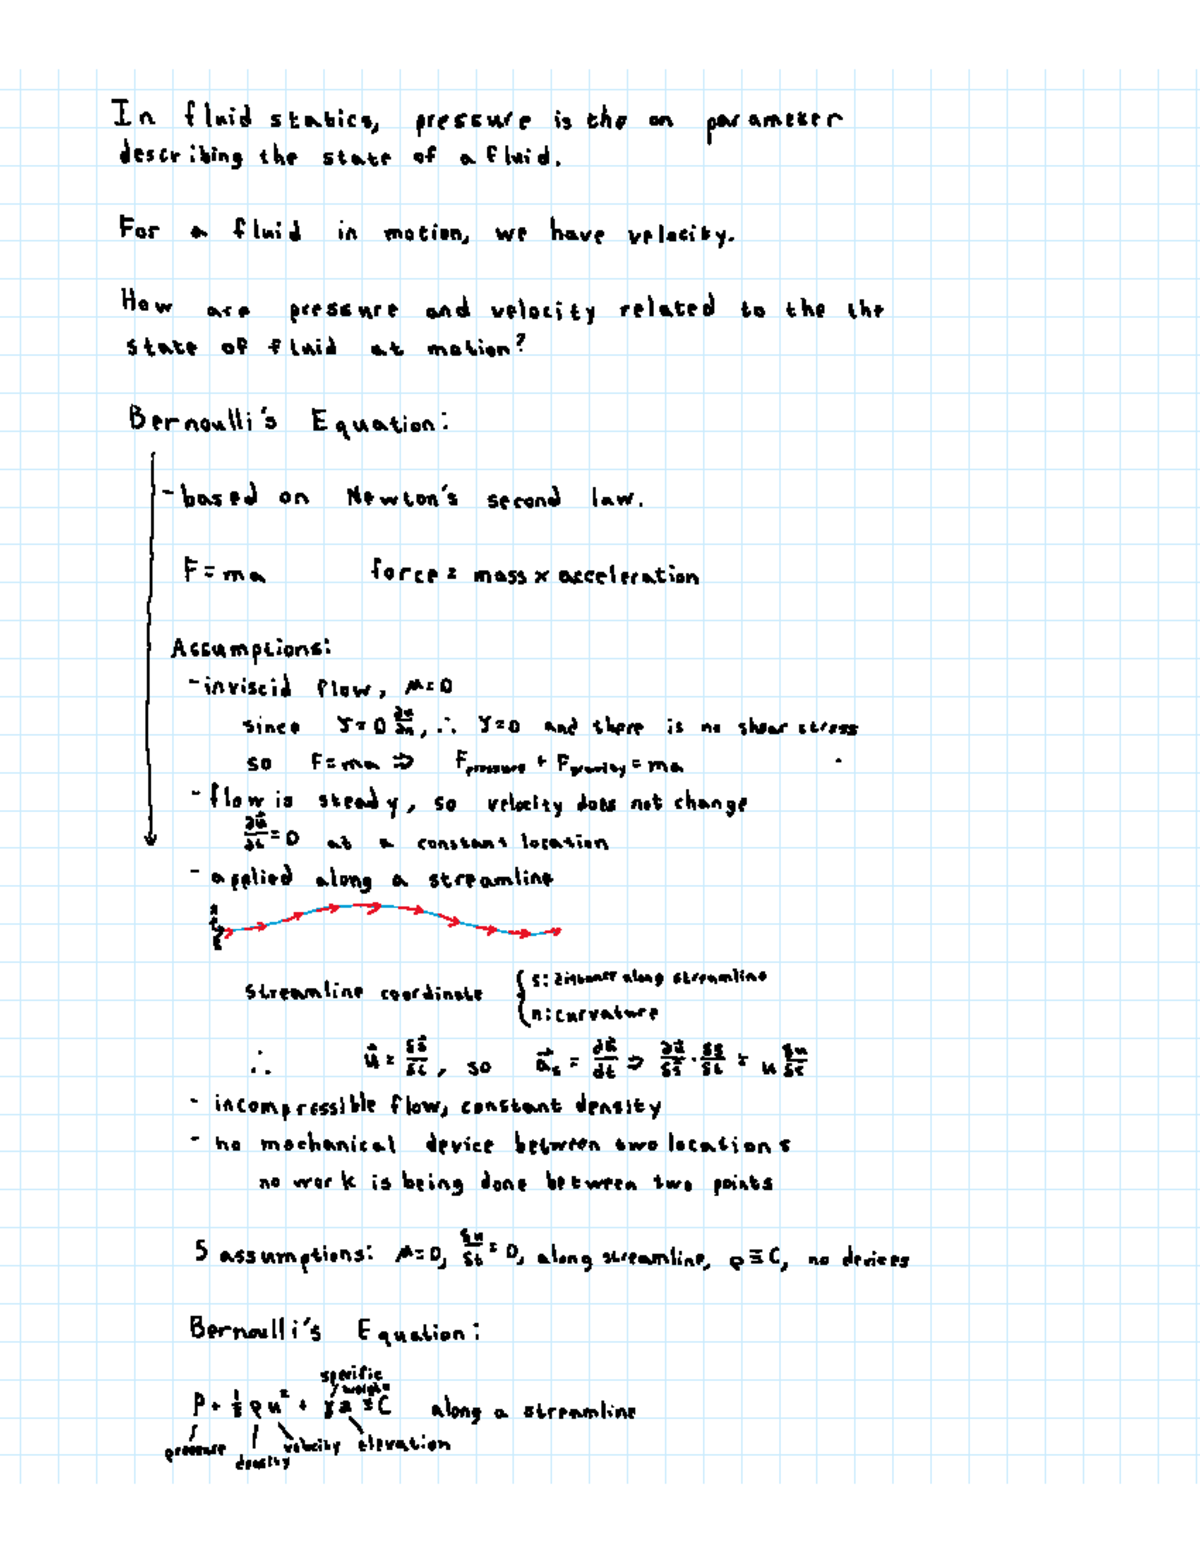 In fluid statics, pressure is the on parameter
describing the state of a fluid.
For a fluid in motion, we have velocity.
How are pressure and velocity related to the the
state of fluid at motion?
Bernoulli's Equation:
- based on Newton's second law.
F = ma force = mass x acceleration
Assumptions:
- inviscid flow, μ=0
since τ=0 ∂u/∂n, ∴ τ=0 and there is no shear stress
so F=ma ⇒ Fpressure + Fgravity = ma
- flow is steady, so velocity does not change
∂u⃗/∂t = 0 at a constant location
- applied along a streamline
streamline coordinate { s: distance along streamline
n: curvature
∴ u⃗ = δs⃗/δt, so a⃗s = du⃗/dt ⇒ ∂u⃗/δs⃗ · δs/δt = u δu/δs
- incompressible flow, constant density
- no mechanical device between two locations
no work is being done between two points
5 assumptions: μ=0, δu/δt = 0, along streamline, ρ≡C, no devices
Bernoulli's Equation:
specific
weight
P + ½ρu² + γz ≡ C along a streamline
pressure density velocity elevation